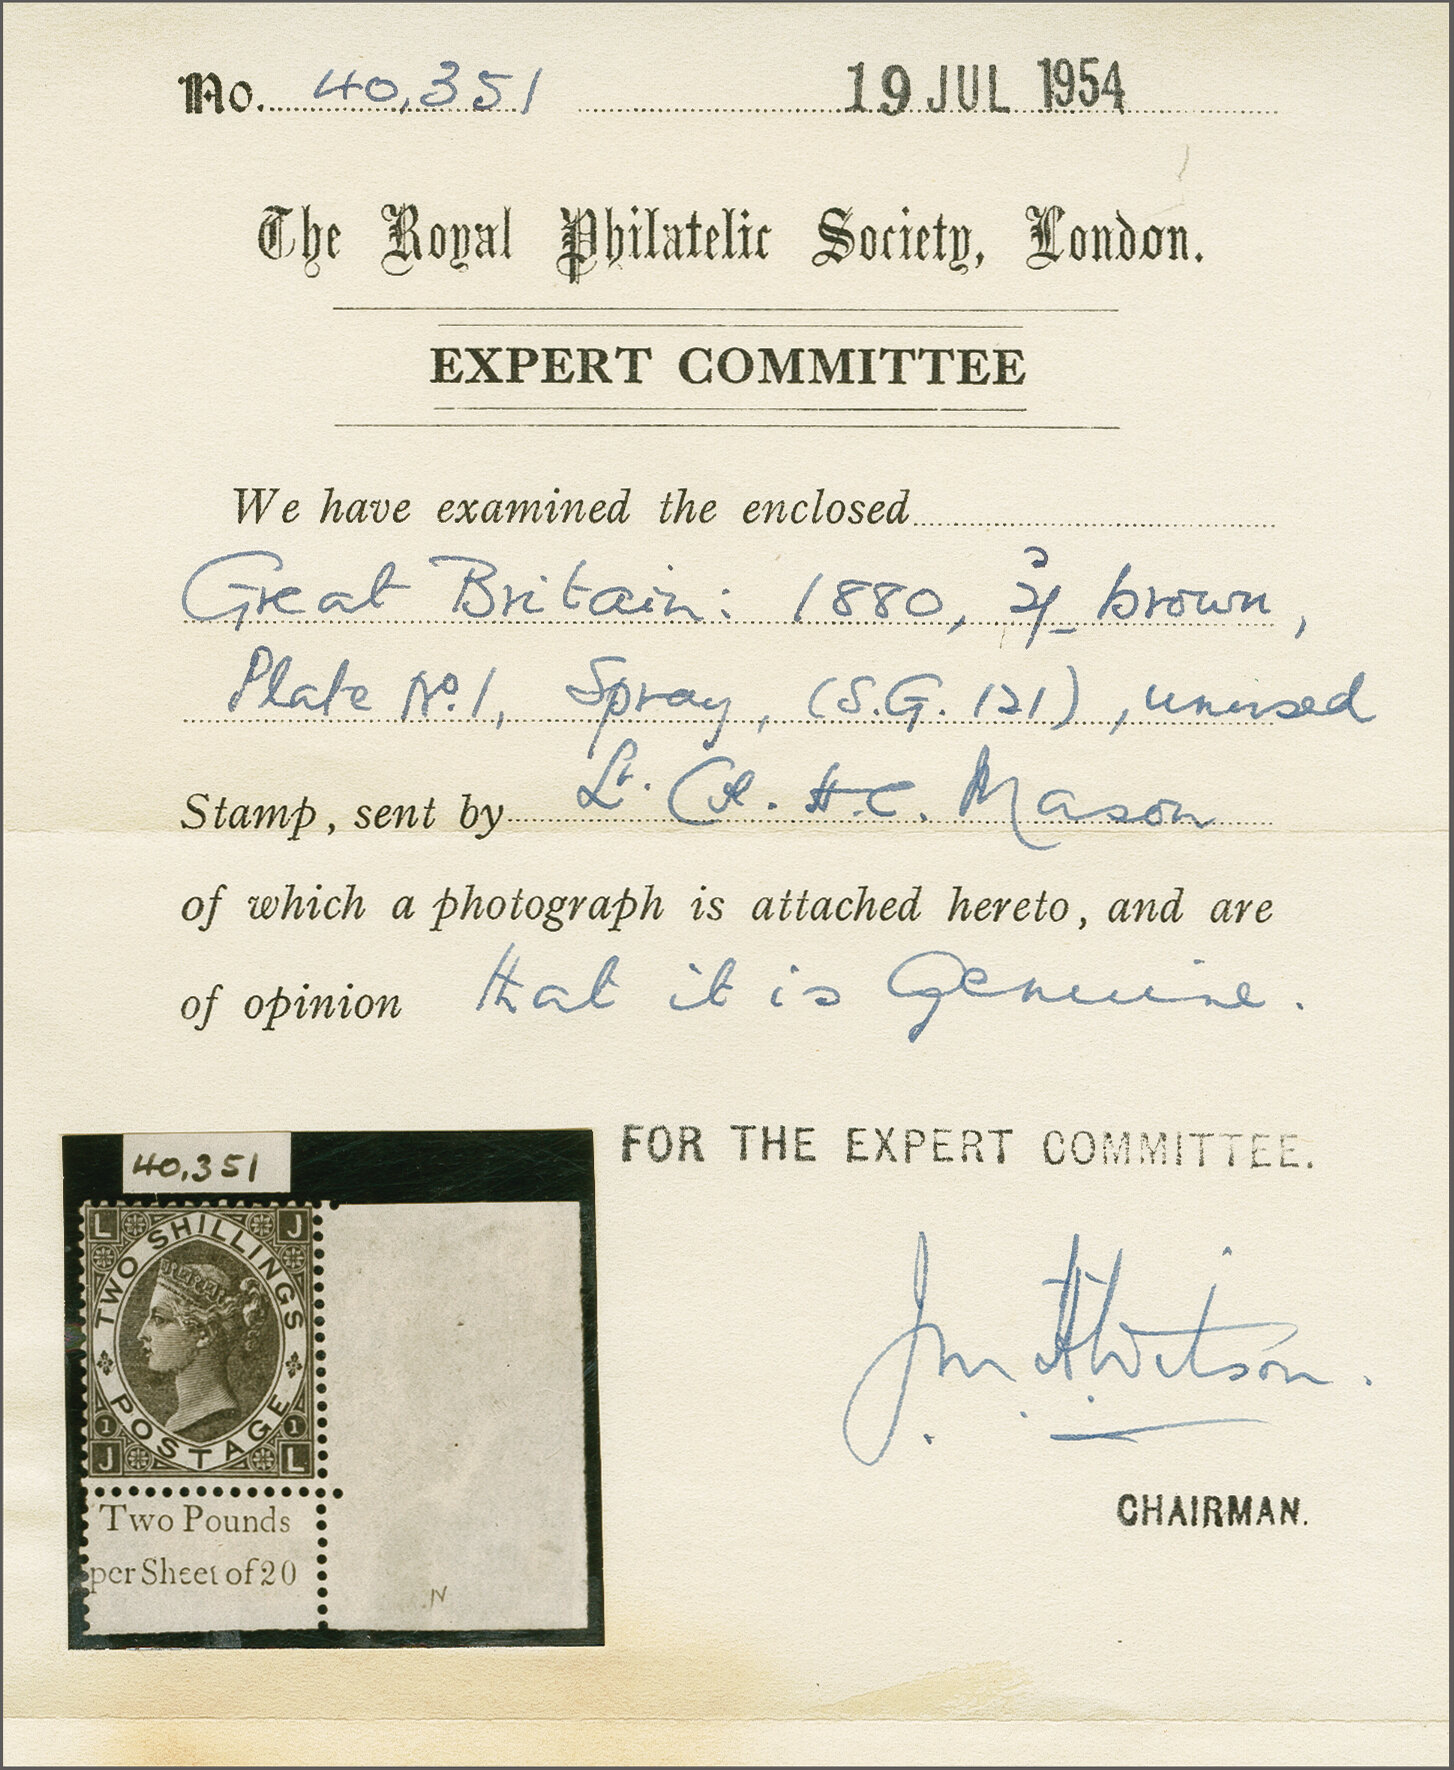 No. 40,351 19 JUL 1954
The Royal Philatelic Society, London.
EXPERT COMMITTEE
We have examined the enclosed
Great Britain: 1880, 2/- brown,
Plate No. 1, Spray, (S.G. 121), unused
Stamp, sent by Lt. Cr. H.C. Mason
of which a photograph is attached hereto, and are
of opinion that it is Genuine.
FOR THE EXPERT COMMITTEE.
40,351
L J
TWO SHILLINGS
POSTAGE
1 1
J L
Two Pounds
per Sheet of 20
N
CHAIRMAN.